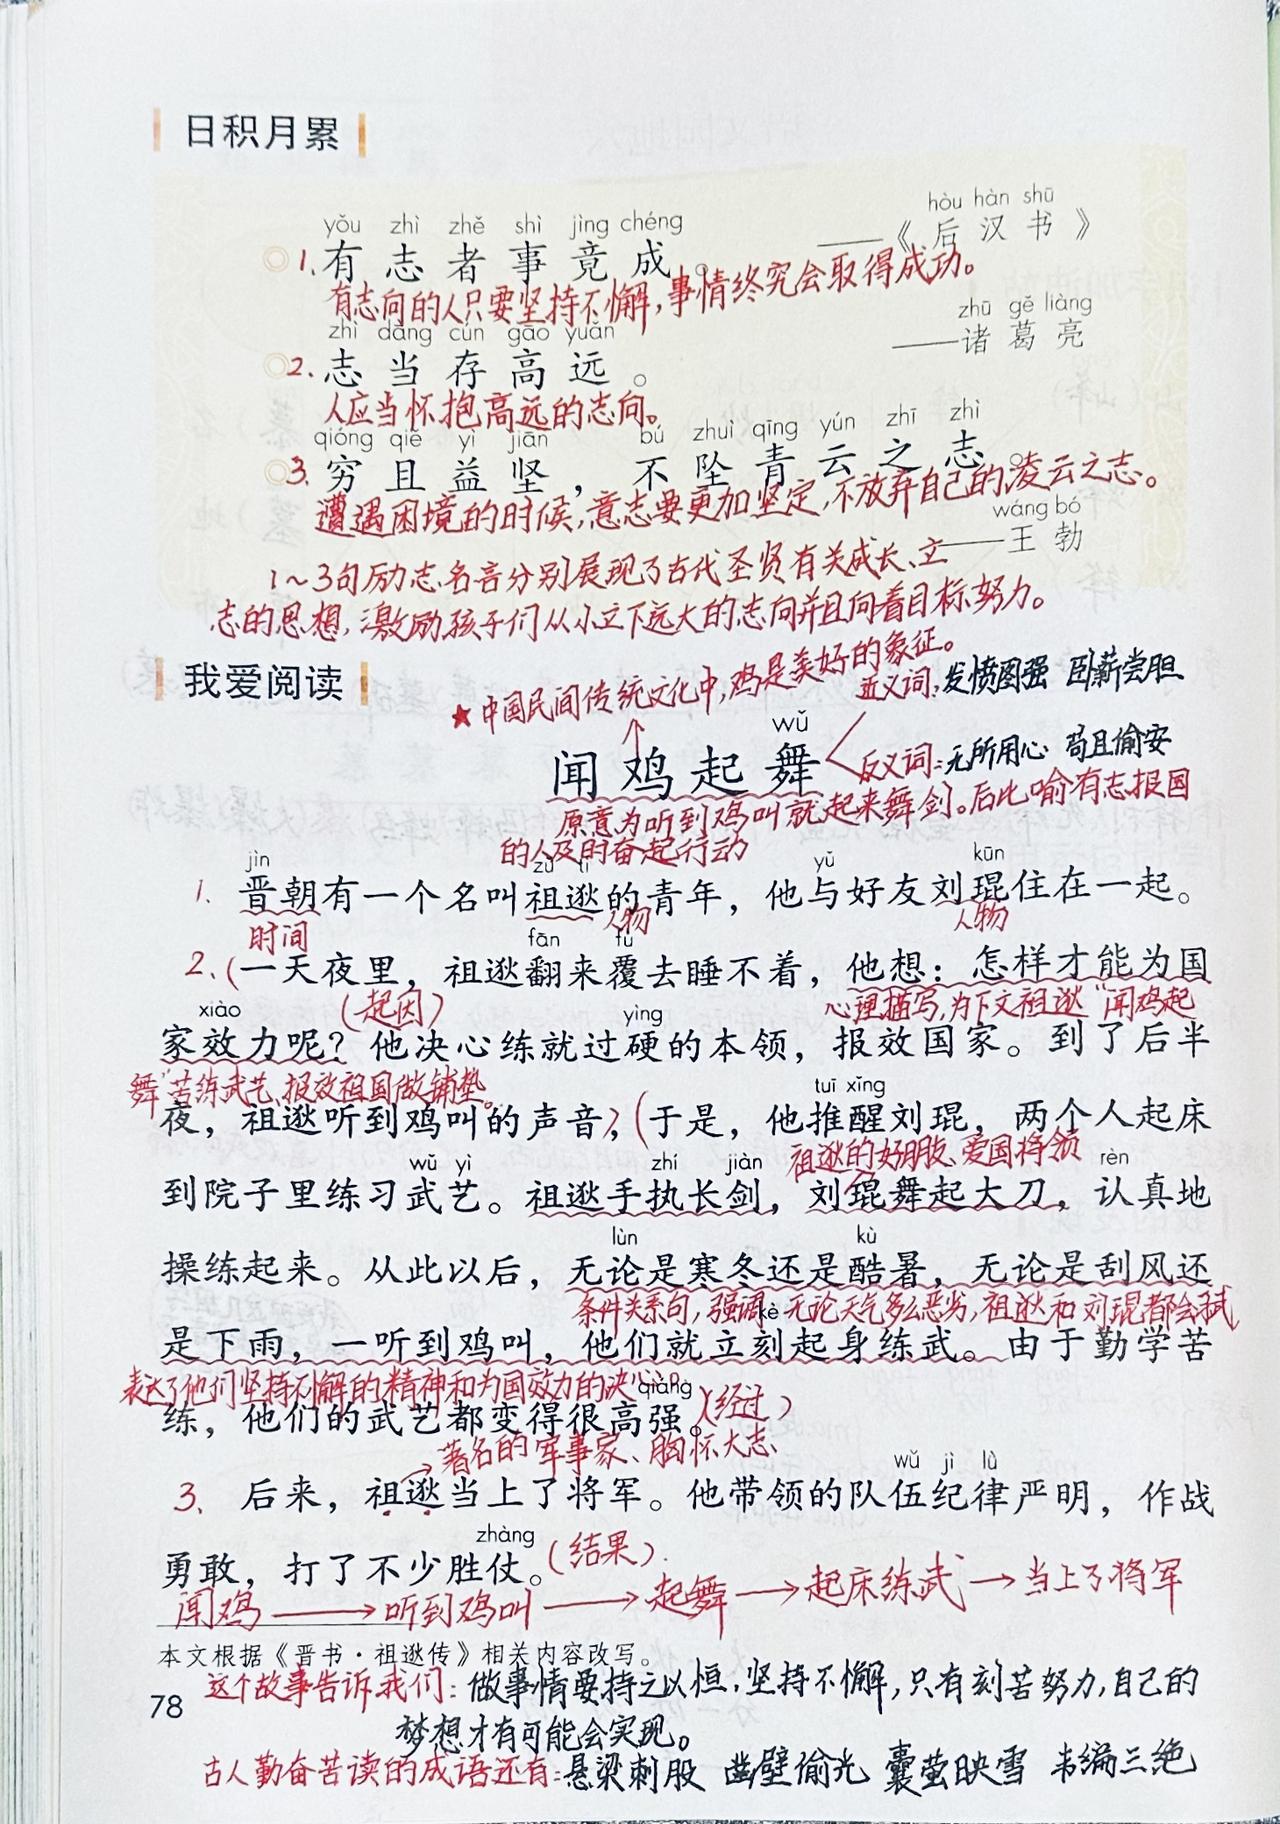 日积月累
hòu hàn shū
yǒu zhì zhě shì jìng chéng
——《后汉书》
1、有志者事竟成。
有志向的人只要坚持不懈,事情终究会取得成功。
zhū gě liàng
zhì dāng cún gāo yuǎn
——诸葛亮
2. 志当存高远。
人应当怀抱高远的志向。
qióng qiě yì jiān bú zhuì qīng yún zhī zhì
3. 穷且益坚,不坠青云之志。
遭遇困境的时候,意志要更加坚定,不放弃自己的凌云之志。
wáng bó
——王勃
1~3句励志名言分别展现了古代圣贤有关成长、立
志的思想,激励孩子们从小立下远大的志向并且向着目标努力。
我爱阅读
★中国民间传统文化中,鸡是美好的象征。
近义词:发愤图强 卧薪尝胆
wǔ
闻鸡起舞
反义词:无所用心 苟且偷安
原意为听到鸡叫就起来舞剑。后比喻有志报国
的人及时奋起行动
jìn zǔ tì yǔ kūn
1. 晋朝有一个名叫祖逖的青年,他与好友刘琨住在一起。
时间 人物 人物
fān fù
2、(一天夜里,祖逖翻来覆去睡不着,他想:怎样才能为国
(起因) 心理描写,为下文祖逖“闻鸡起
xiào yìng
家效力呢?他决心练就过硬的本领,报效国家。到了后半
舞”苦练武艺、报效祖国做铺垫。
tuī xǐng
夜,祖逖听到鸡叫的声音),(于是,他推醒刘琨,两个人起床
祖逖的好朋友、爱国将领
wǔ yì zhí jiàn rèn
到院子里练习武艺。祖逖手执长剑,刘琨舞起大刀,认真地
lùn kù
操练起来。从此以后,无论是寒冬还是酷暑,无论是刮风还
条件关系句,强调无论天气多么恶劣,祖逖和刘琨都会练武
kè
是下雨,一听到鸡叫,他们就立刻起身练武。由于勤学苦
表达了他们坚持不懈的精神和为国效力的决心。
qiáng
练,他们的武艺都变得很高强。)(经过)
→著名的军事家、胸怀大志
wǔ jì lǜ
3、后来,祖逖当上了将军。他带领的队伍纪律严明,作战
zhàng
勇敢,打了不少胜仗。(结果)
闻鸡→听到鸡叫→起舞→起床练武→当上了将军
本文根据《晋书·祖逖传》相关内容改写。
这个故事告诉我们:做事情要持之以恒,坚持不懈,只有刻苦努力,自己的
78
梦想才有可能会实现。
古人勤奋苦读的成语还有:悬梁刺股 凿壁偷光 囊萤映雪 韦编三绝